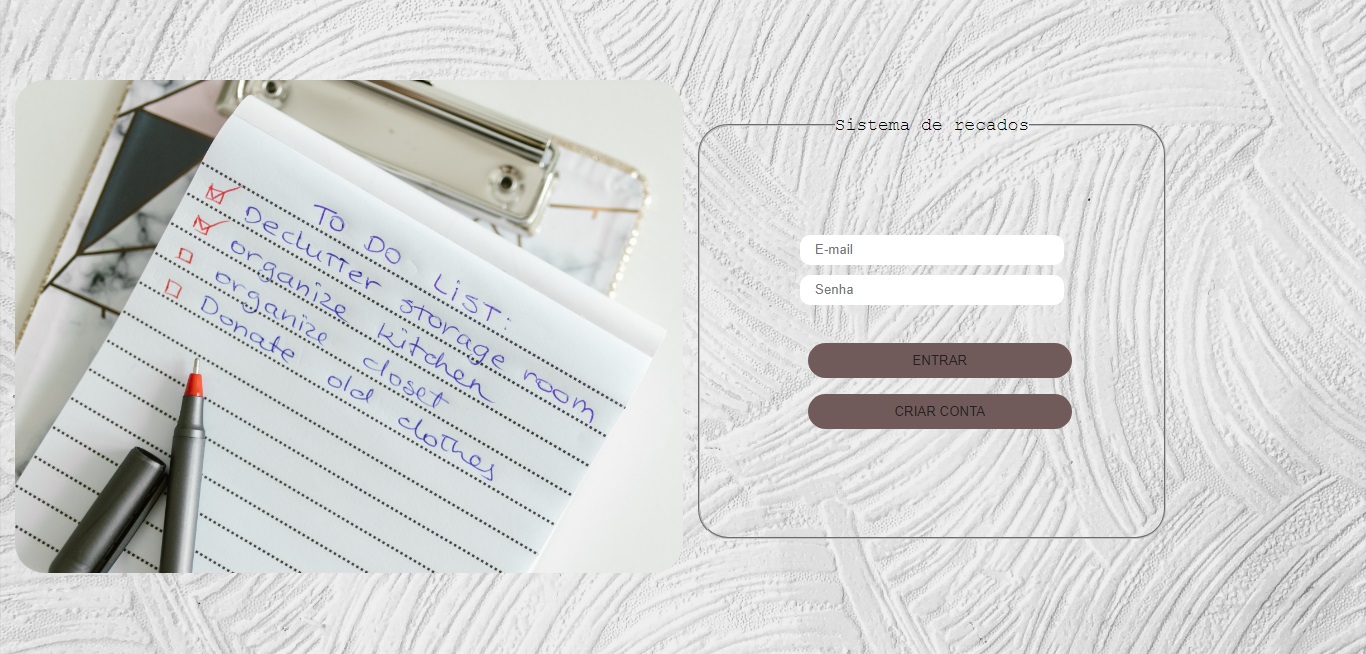 TO DO LIST:
Declutter storage room
organize kitchen
organize closet
Donate old clothes
Sistema de recados
E-mail
Senha
ENTRAR
CRIAR CONTA